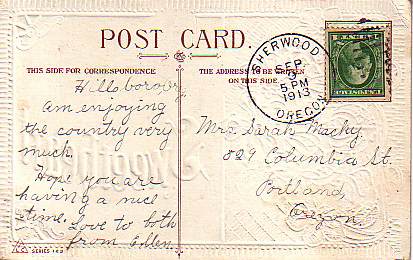 POST CARD.
THIS SIDE FOR CORRESPONDENCE
THE ADDRESS TO BE WRITTEN
ON THIS SIDE.
SHERWOOD
SEP
5 PM
1913
OREGON
Hillsboro
Am enjoying
the country very
much.
Hope you are
having a nice
time.
Love to both
from Ellen.
Mrs. Sarah Macky
829 Columbia St.
Portland,
Oregon.
SERIES